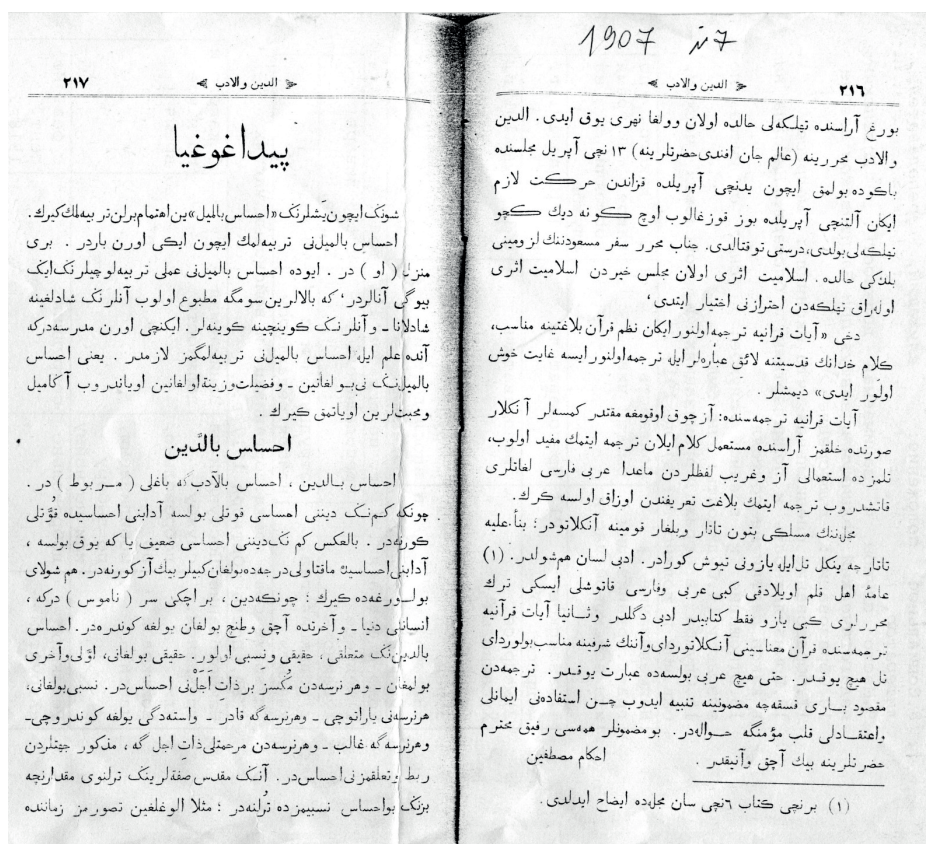 1907 نڭ 7
٢١٦
الدین والادب
بورغ آراسنده تهلكه‌لی حالده اولان وولغا نهری یوق ایدی. الدین
والادب محررینه (عالم جان افندی حضرتلرینه) ١٣ نچی آپریل مجلسنده
باكوده بولمق ایچون یدنچی آپریلده قزاندن حركت لازم
ایكان آلتنچی آپریلده بوز قوزغالوب اوچ كونه دیك كچو
تهلكه‌لی بولدی، درستی توقتالدی. جناب محرر سفر مسعودننك لزومینی
بلدكی حالده. اسلامیت اثری اولان مجلس خیردن اسلامیت اثری
اوله‌راق تهلكه‌دن احترازنی اختیار ایتدی،
دخی «آیات قرانیه ترجمه اولنور ایكان نظم قرآن بلاغتینه مناسب،
كلام خدانك قدسیتنه لائق عباره‌لر ایله ترجمه اولنور ایسه غایت خوش
اولور ایدی» دیمشلر.
آیات قرانیه ترجمه‌سنده: آز چوق اوقومغه مقتدر كمسه‌لر آنكلار
صورتده خلقمز آراسنده مستعمل كلام ایلان ترجمه ایتمك مفید اولوب،
تلمزده استعمالی آز وغریب لفظلردن ماعدا عربی فارسی لغاتلری
قاتشدروب ترجمه ایتمك بلاغت تعریفندن اوزاق اولسه كرك.
مجله‌ننك مسلكی بتون تاتار وبلغار قومینه آنكلاتودر؛ بناءً علیه
تاتارجه ینكل تل ایله یازونی تیوش كورادر. ادبی لسان هم شولدر. (١)
عامهٔ اهل قلم اویلادقی كبی عربی وفارسی قاتوشلی ایسكی ترك
محررلری كبی یازو فقط كتابیدر ادبی دگلدر وثانیا آیات قرآنیه
ترجمه‌سنده قرآن معناسینی آنكلاتوردای وآننك شرفینه مناسب بولوردای
تل هیچ یوقدر. حتی هیچ عربی بولسه‌ده عبارت یوقدر. ترجمه‌دن
مقصود باری قسقه‌چه مضمونینه تنبیه ایدوب چن استفاده‌نی ایمانلی
واعتقادلی قلب مؤمنگه حواله‌در. بو مضمونلر همه‌سی رفیق محترم
حضرتلرینه بیك آچق وآنیقدر. احكام مصطفین
(١) برنچی كتاب ٦نچی سان مجله‌ده ایضاح ایدلدی.
الدین والادب
٢١٧
پیداغوغیا
شونڭ ایچون یشلرنڭ «احساس بالمیل»ین اهتمام برلن تربیه‌لمك كیرك.
احساس بالمیل‌نی تربیه‌لمك ایچون ایكی اورن باردر. بری
منزل (او) در. ایوده احساس بالمیل‌نی عملی تربیه‌لوچیلرنڭ ایڭ
بیوگی آنالردر، كه بالالرین سومگه مطبوع اولوب آنلرنڭ شادلغینه
شادلانا ـ وآنلرنڭ كوینچینه كوینه‌لر. ایكنچی اورن مدرسه‌دركه
آنده علم ایله احساس بالمیل‌نی تربیه‌لمگمز لازمدر. یعنی احساس
بالمیل‌نڭ نی بولغانین ـ وفضیلت وزینة اولغانین اویاندروب آكا میل
ومحبتلرین اویاتمق كیرك.
احساس بالدّین
احساس بالدین، احساس بالآدب‌كه باغلی (مربوط) در.
چونكه كم‌نڭ دیننی احساسی قوتلی بولسه آدابنی احساسیده قُوّتلی
كورنه‌در. بالعكس كم‌نڭ دیننی احساسی ضعیف یا كه یوق بولسه،
آدابنی احساسینه ماقتاولی درجه‌ده بولغان كبیلر بیك آز كورنه‌در. هم شولای
بولورغه‌ده كیرك؛ چونكه دین، بر اچكی سر (ناموس) دركه،
انساننی دنیا ـ وآخرتده آچق وطنچ بولغان یولغه كوندره‌در. احساس
بالدین‌نڭ متعلقی، حقیقی ونسبی اولور. حقیقی بولغانی، اوّلی وآخری
بولمغان ـ وهر نرسه‌دن مُڭسز بر ذات اَجَلّ‌نی احساس‌در. نسبی بولغانی،
هر نرسه‌نی یاراتوچی ـ وهر نرسه‌گه قادر ـ واسته‌دگی یولغه كوندروچی ـ
وهر نرسه‌گه غالب ـ وهر نرسه‌دن مرحمتلی ذات اجل‌گه، مذكور جهتلردن
ربط وتعلقمزنی احساس‌در. آننڭ مقدس صفةلرینڭ ترلنوی مقدارنچه
بزنڭ بو احساس نسبیمزده تُرلنه‌در؛ مثلا الوغلغین تصورمز زماننده